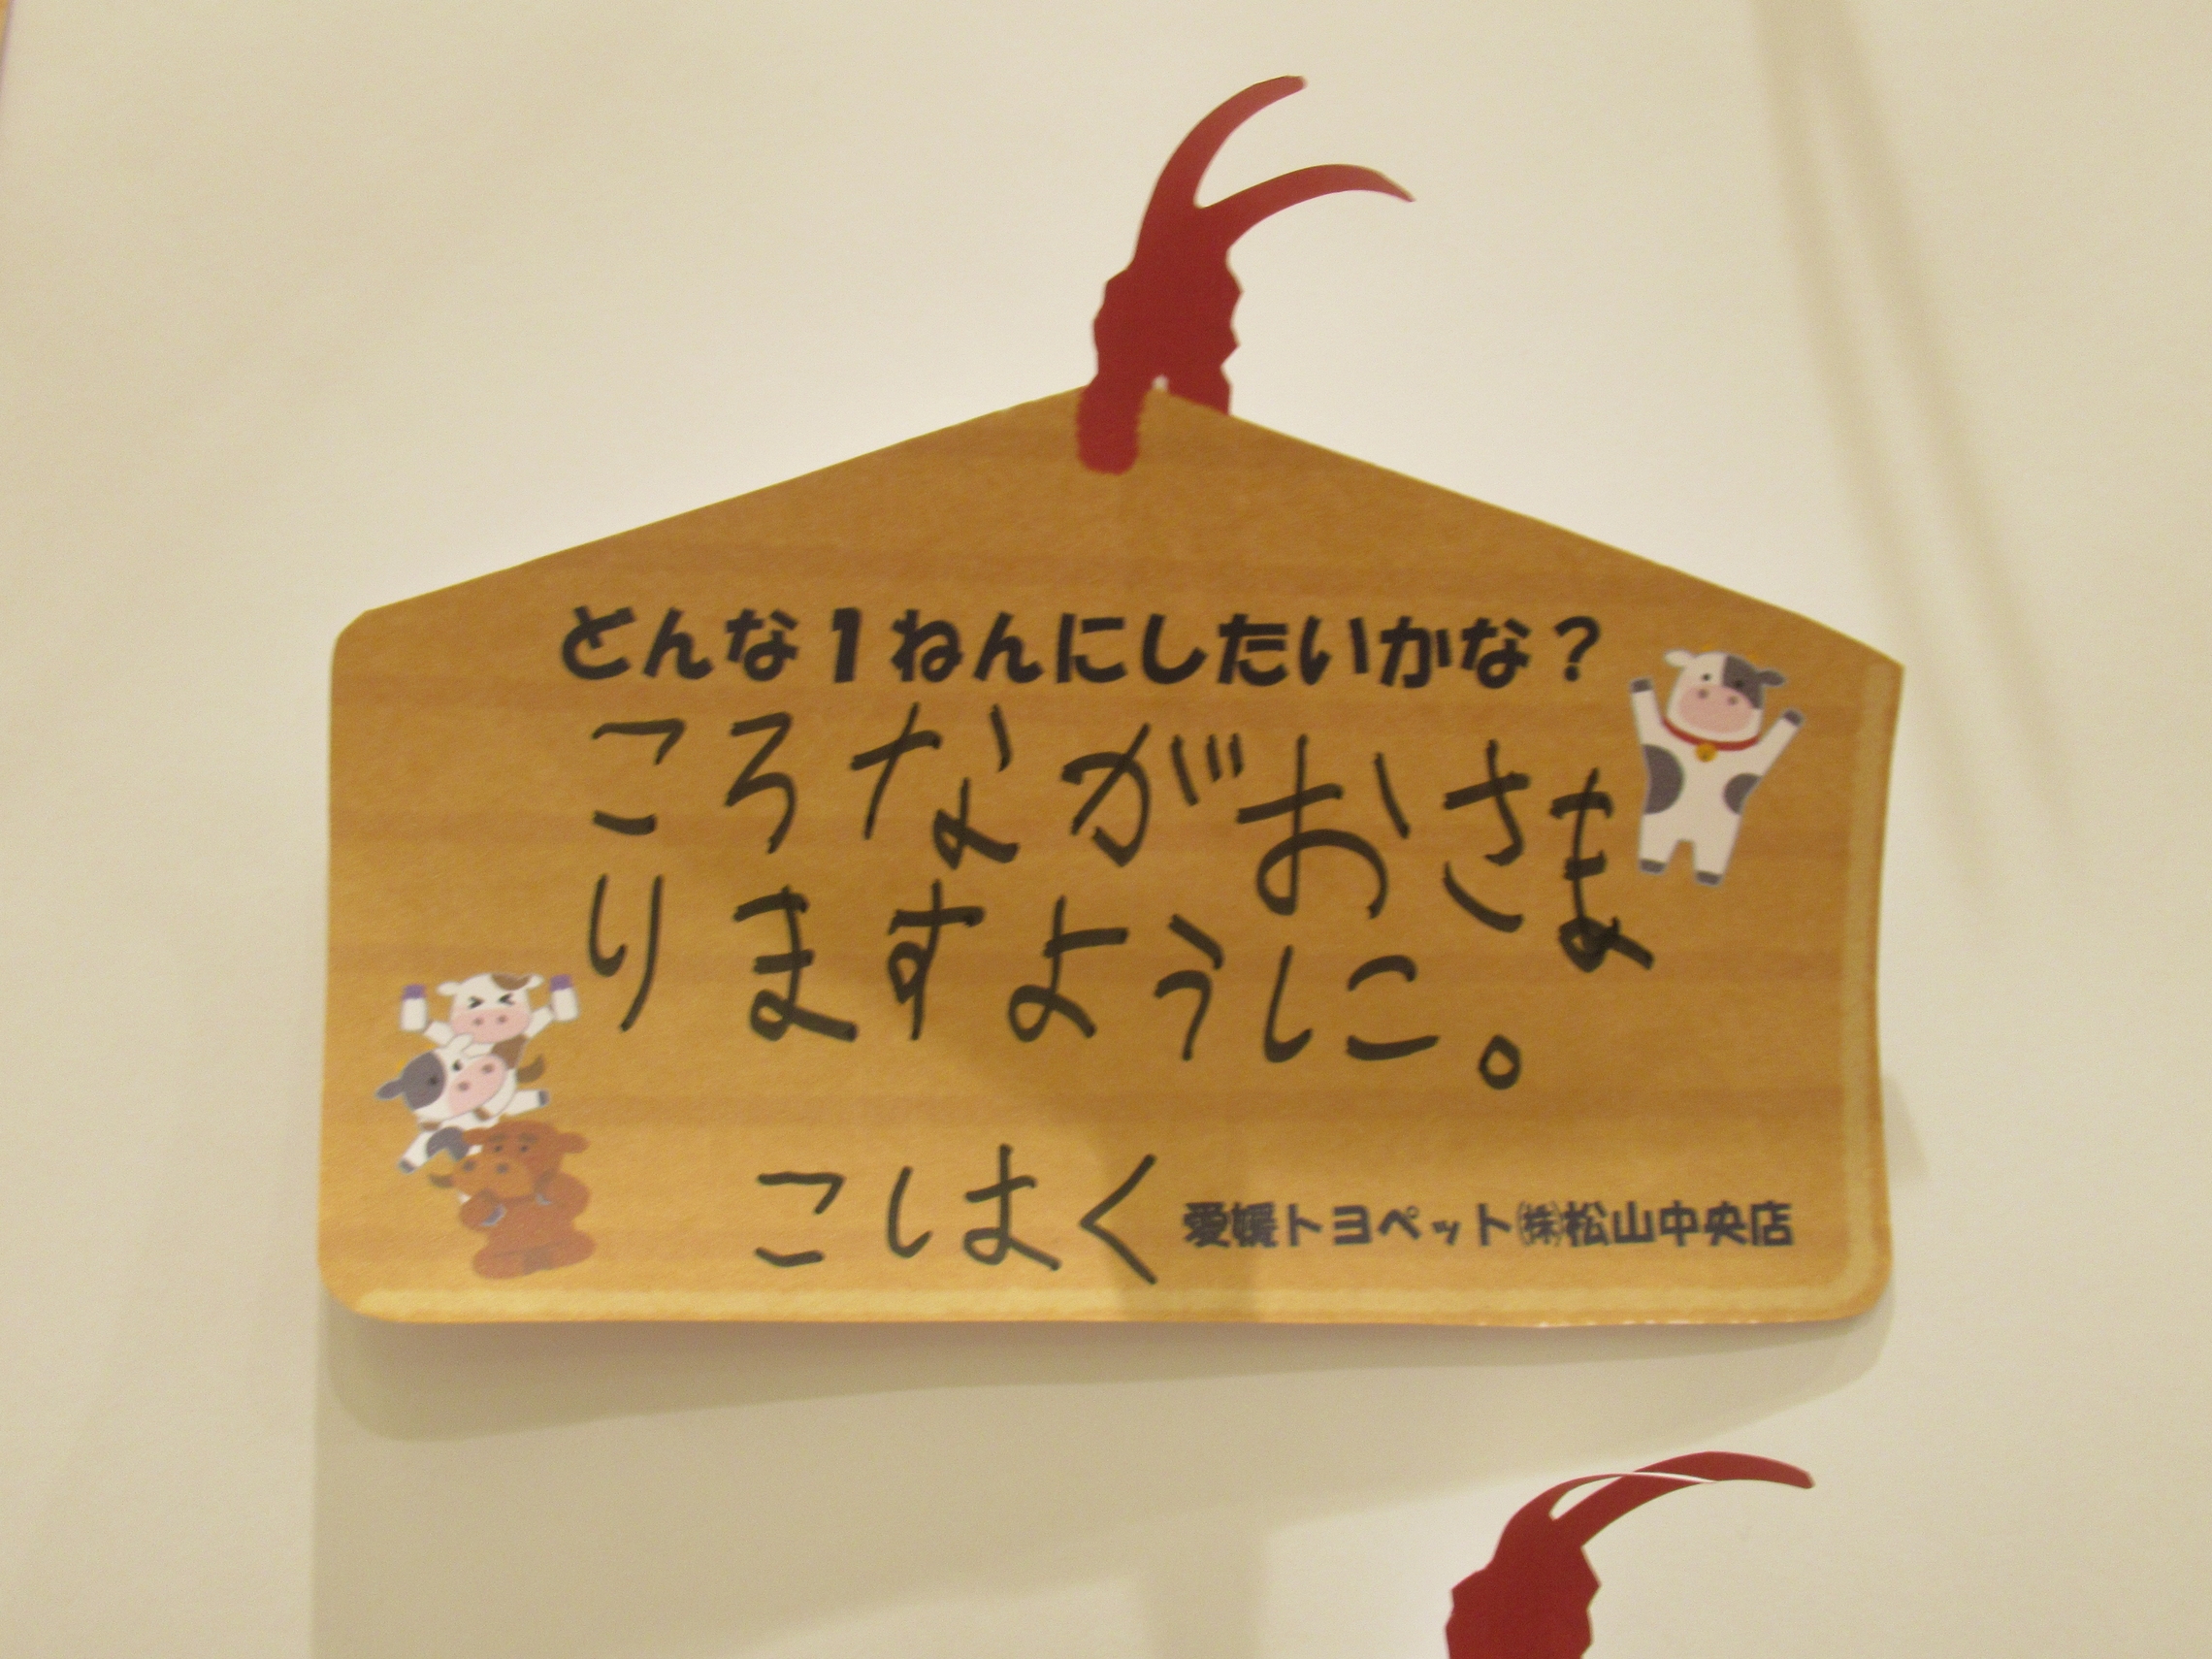 どんな1ねんにしたいかな？
ころながおさま
りますように。
こはく
愛媛トヨペット㈱松山中央店